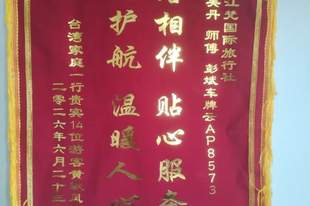 江梵国际旅行社
吴丹 师傅 彭斌车牌云AP8573
相伴 贴心服务
护航 温暖人
台湾家庭一行贵宾14位游客黄敏凤
二零二六年六月二十三